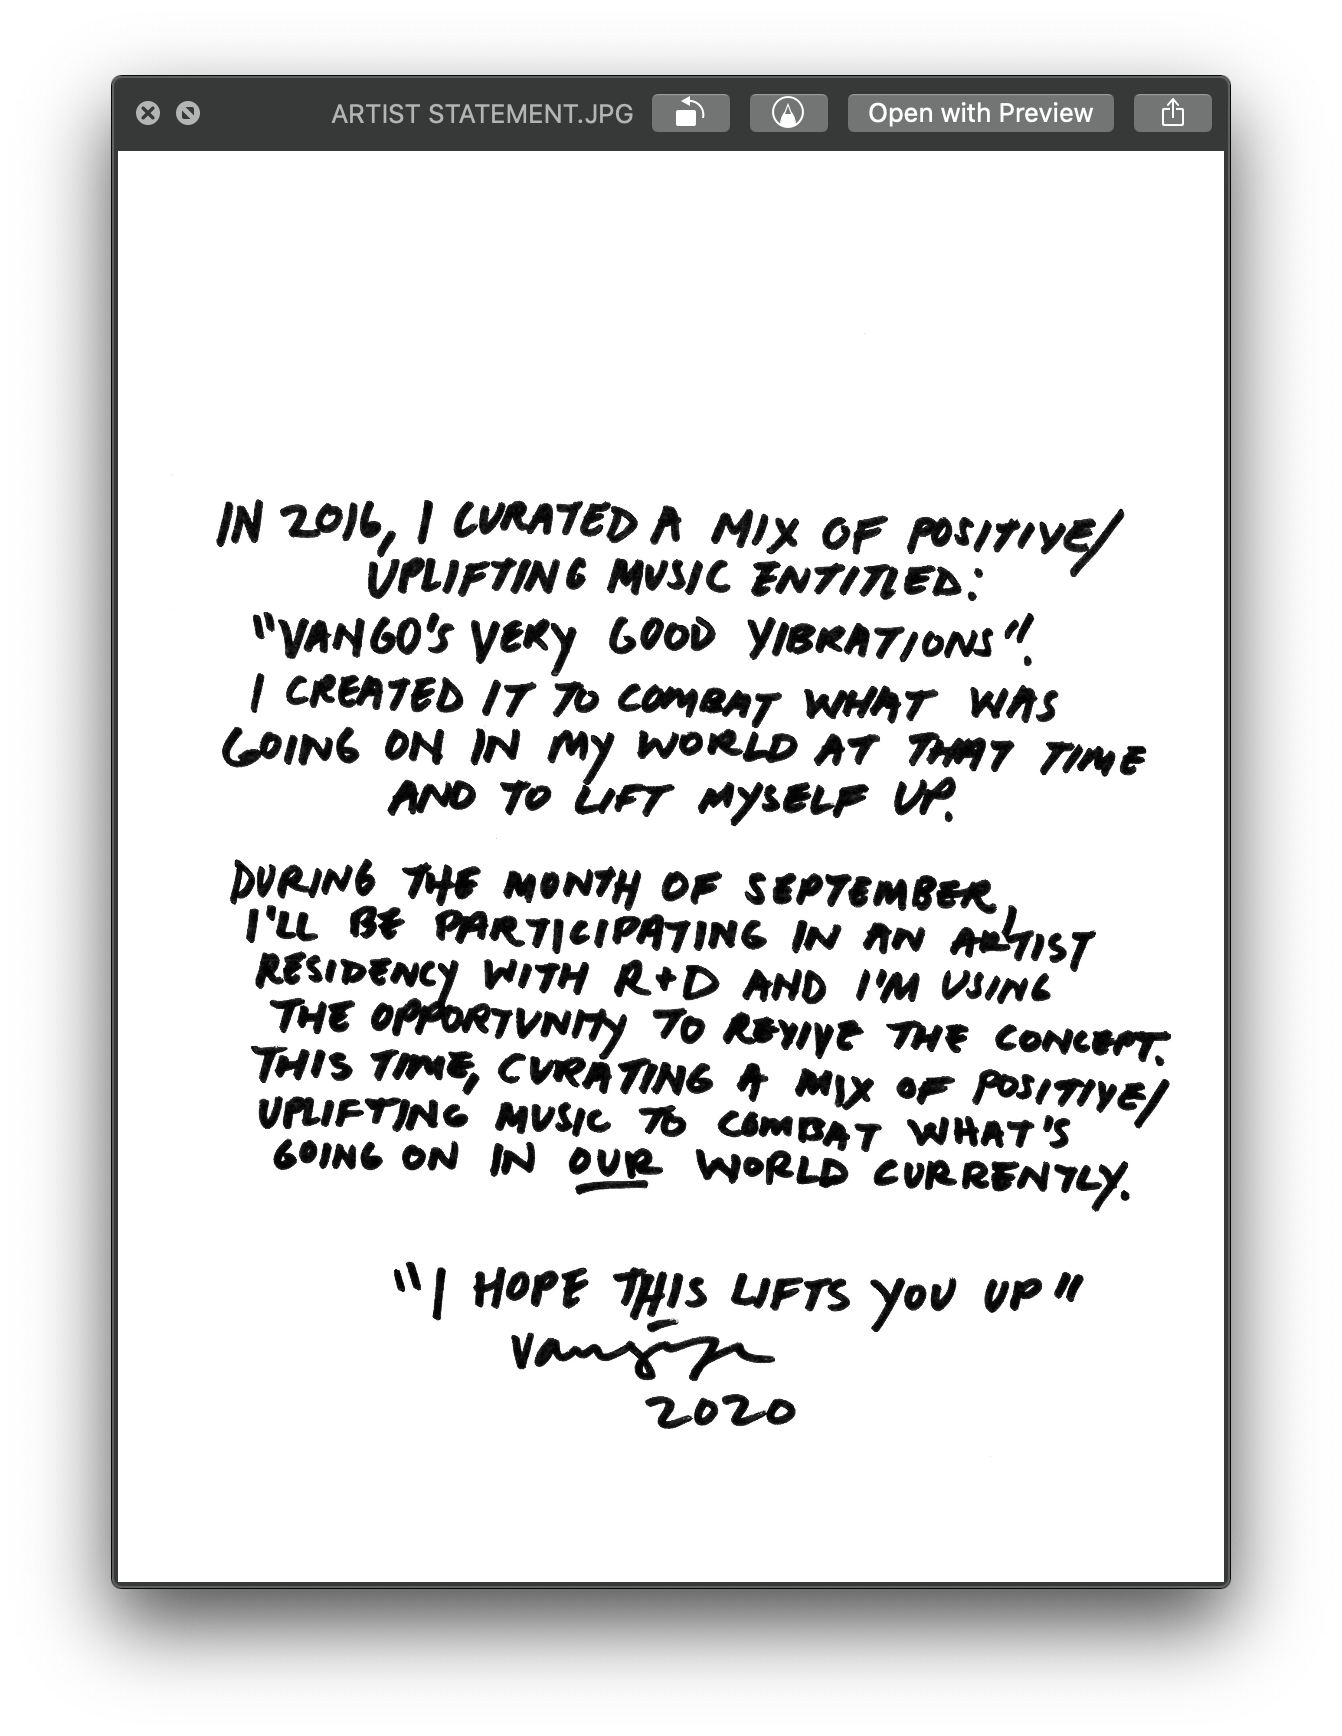 ARTIST STATEMENT.JPG
Open with Preview
IN 2016, I CURATED A MIX OF POSITIVE/
UPLIFTING MUSIC ENTITLED:
"VANGO'S VERY GOOD VIBRATIONS".
I CREATED IT TO COMBAT WHAT WAS
GOING ON IN MY WORLD AT THAT TIME
AND TO LIFT MYSELF UP.
DURING THE MONTH OF SEPTEMBER,
I'LL BE PARTICIPATING IN AN ARTIST
RESIDENCY WITH R+D AND I'M USING
THE OPPORTUNITY TO REVIVE THE CONCEPT.
THIS TIME, CURATING A MIX OF POSITIVE/
UPLIFTING MUSIC TO COMBAT WHAT'S
GOING ON IN OUR WORLD CURRENTLY.
"I HOPE THIS LIFTS YOU UP"
2020